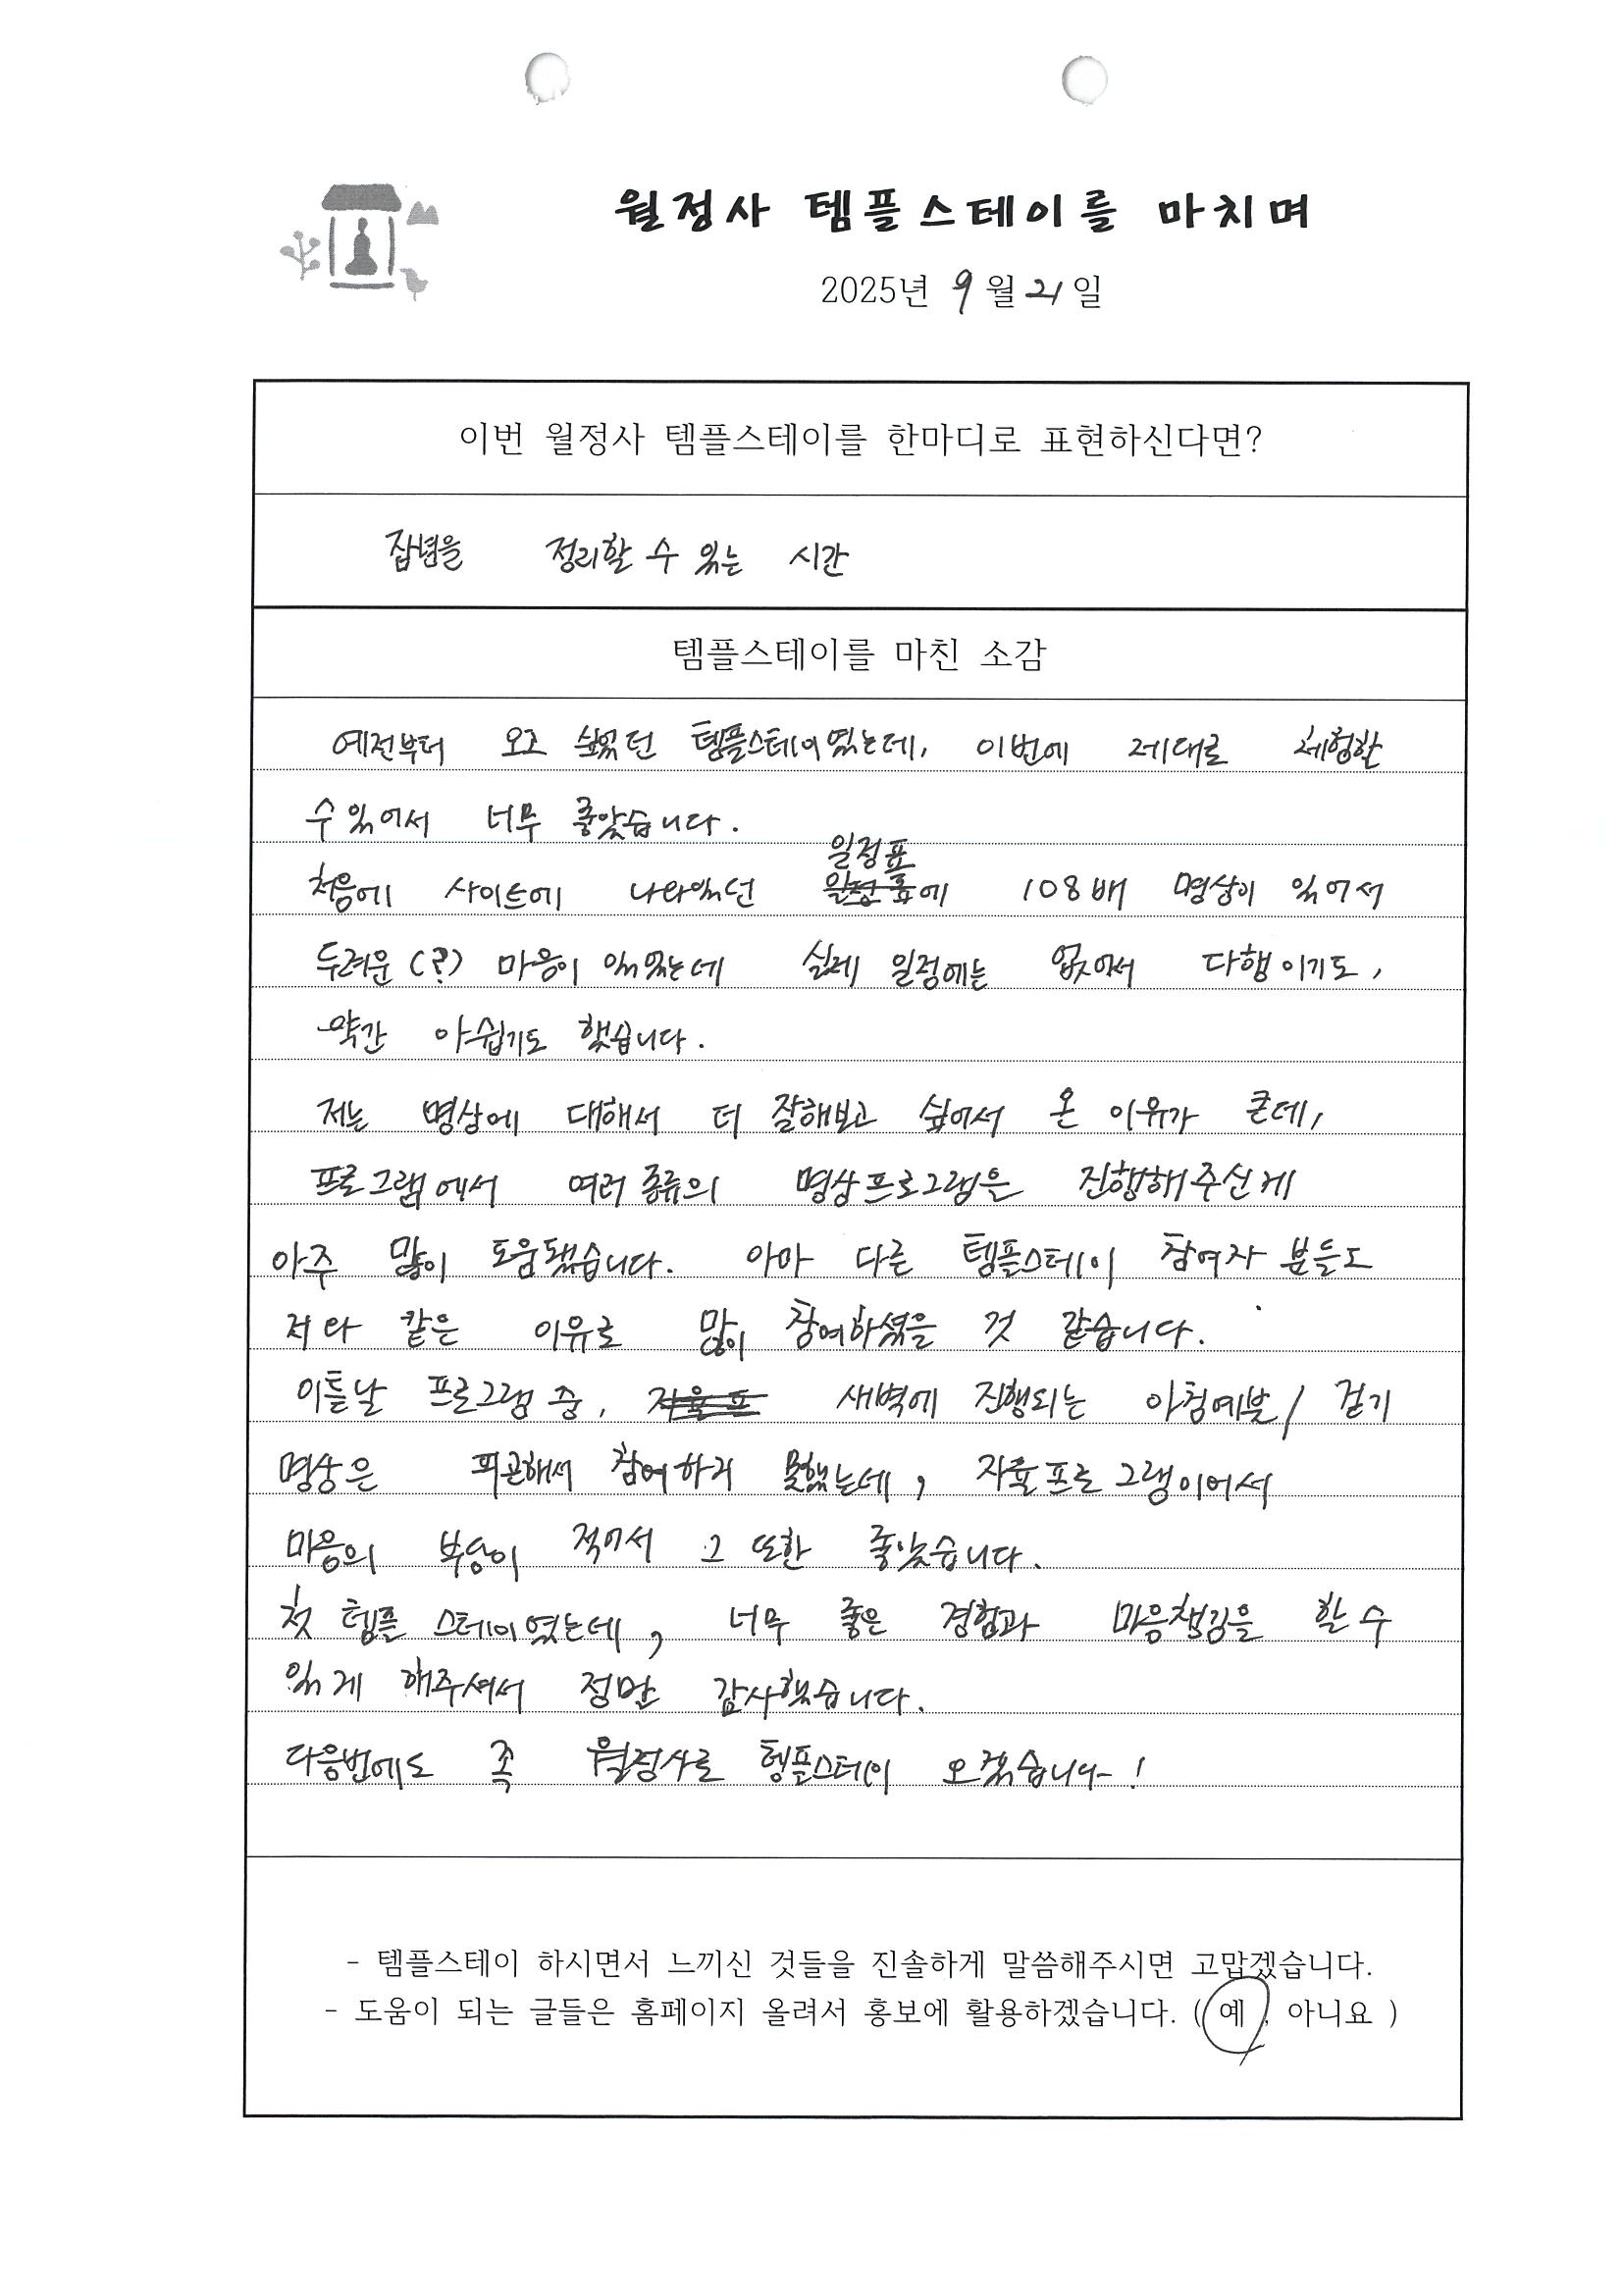 월정사 템플스테이를 마치며
2025년 9월 21일
이번 월정사 템플스테이를 한마디로 표현하신다면?
잡념을 정리할 수 있는 시간
템플스테이를 마친 소감
예전부터 오고 싶었던 템플스테이였는데, 이번에 제대로 체험할
수 있어서 너무 좋았습니다.
일정표
처음에 사이트에 나와있던 일정표에 108배 명상이 있어서
두려운(?) 마음이 있었는데 실제 일정에는 없어서 다행이기도,
약간 아쉽기도 했습니다.
저는 명상에 대해서 더 잘해보고 싶어서 온 이유가 큰데,
프로그램에서 여러 종류의 명상프로그램은 진행해주신게
아주 많이 도움됐습니다. 아마 다른 템플스테이 참여자 분들도
저와 같은 이유로 많이 참여하셨을 것 같습니다.
이튿날 프로그램 중, 자율프 새벽에 진행되는 아침예불/걷기
명상은 피곤해서 참여하지 못했는데, 자율프로그램이어서
마음의 부담이 적어서 그 또한 좋았습니다.
첫 템플스테이였는데, 너무 좋은 경험과 마음챙김을 할 수
있게 해주셔서 정말 감사했습니다.
다음번에도 꼭 월정사로 템플스테이 오겠습니다!
- 템플스테이 하시면서 느끼신 것들을 진솔하게 말씀해주시면 고맙겠습니다.
- 도움이 되는 글들은 홈페이지 올려서 홍보에 활용하겠습니다. ( 예 , 아니요 )